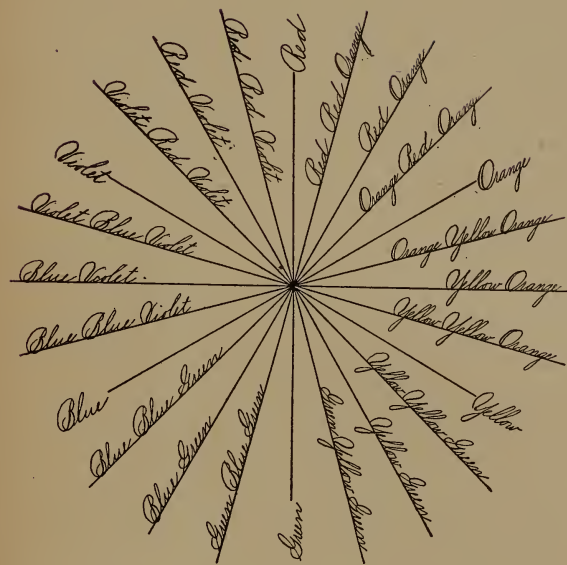 Red
Red Red Orange
Red Orange
Orange Red Orange
Orange
Orange Yellow Orange
Yellow Orange
Yellow Yellow Orange
Yellow
Yellow Yellow Green
Yellow Green
Green Yellow Green
Green
Green Blue Green
Blue Green
Blue Blue Green
Blue
Blue Blue Violet
Blue Violet.
Violet Blue Violet
Violet
Violet Red Violet
Red Violet
Red Red Violet